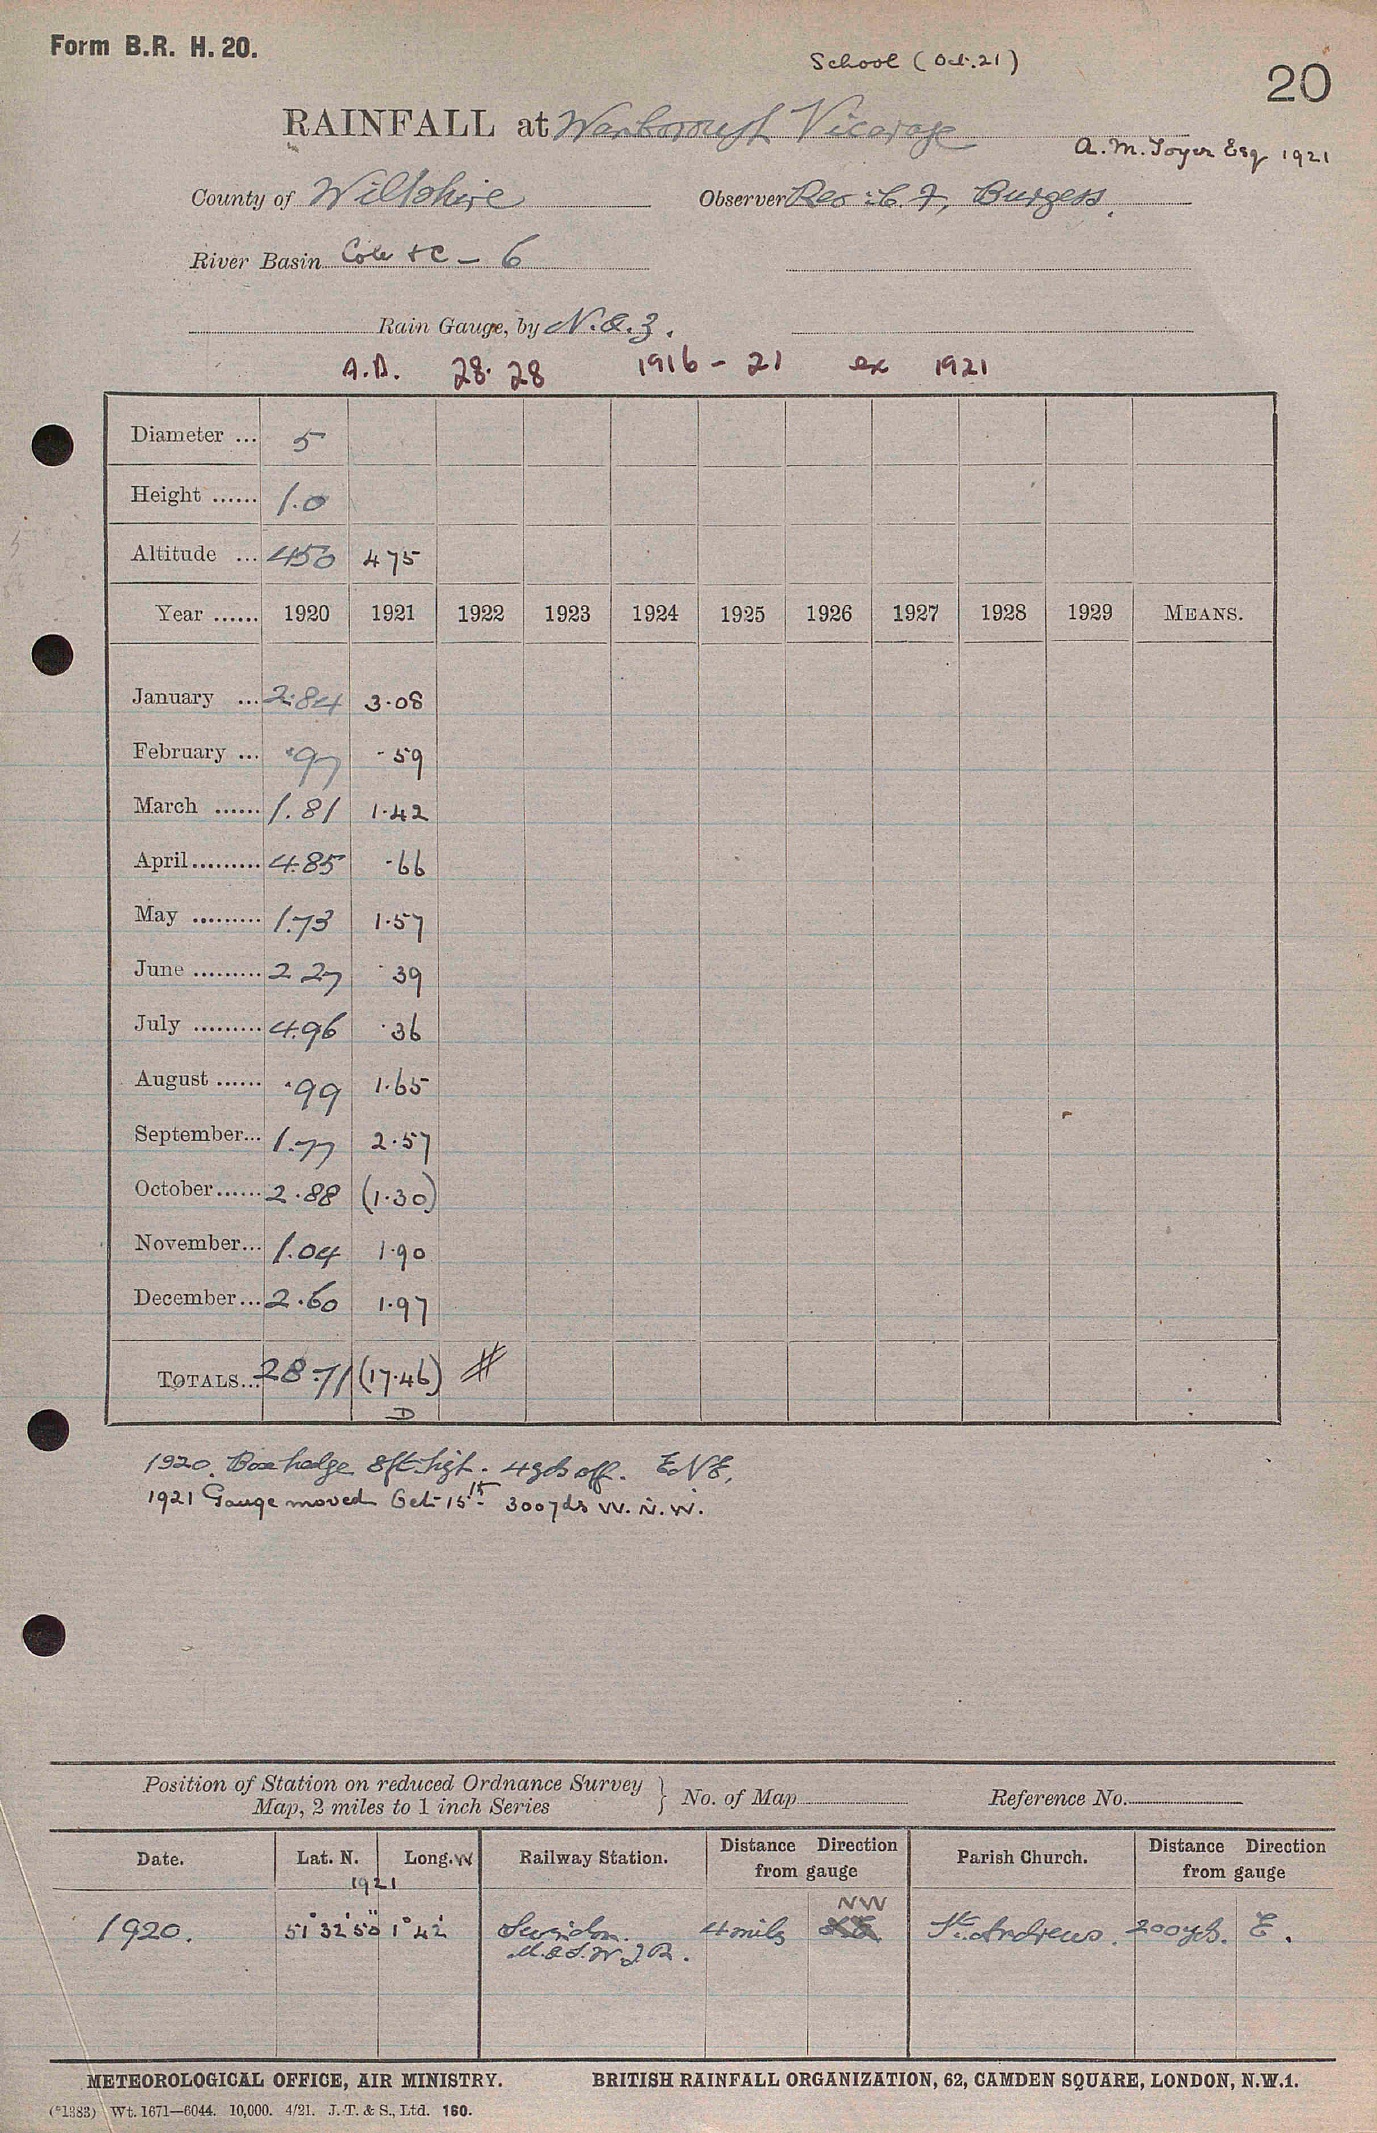 Form B.R. H. 20.
School (Oct. 21)
20
RAINFALL at Wanborough Vicarage
A. M. Toyer Esq 1921
County of Wiltshire Observer Rev: C. F. Burgess.
River Basin Cole &c - 6
Rain Gauge, by N. & Z.
A.A. 28.28 1916 - 21 ex 1921
Diameter ... 5
Height ...... 1.0
Altitude ... 450 475
Year ...... 1920 1921 1922 1923 1924 1925 1926 1927 1928 1929 MEANS.
January ... 2.84 3.08
February ... .97 .59
March ...... 1.81 1.42
April......... 4.85 .66
May ......... 1.73 1.57
June ......... 2 27 .39
July ......... 4.96 .36
August ...... .99 1.65
September... 1.77 2.57
October...... 2.88 (1.30)
November... 1.04 1.90
December... 2.60 1.97
TOTALS... 28.71 (17.46) #
D
1920. Box hedge 8ft. high. 4yds off. ENE.
1921 Gauge moved Oct 15th 300yds W.N.W.
Position of Station on reduced Ordnance Survey
Map, 2 miles to 1 inch Series } No. of Map Reference No.
Date. Lat. N. Long. W Railway Station. Distance Direction from gauge Parish Church. Distance Direction from gauge
1921
NW
1920. 51° 32' 50" 1° 42' Swindon. 4 miles St. Andrews. 200 yds. E.
M. & S. W. J. R.
METEOROLOGICAL OFFICE, AIR MINISTRY. BRITISH RAINFALL ORGANIZATION, 62, CAMDEN SQUARE, LONDON, N.W.1.
(*1383) Wt. 1671—6044. 10,000. 4/21. J. T. & S., Ltd. 160.